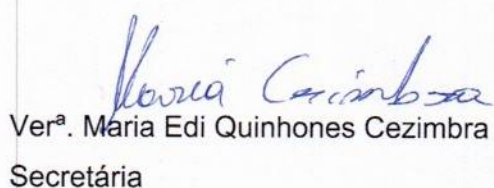 Maria Cezimbra
Verª. Maria Edi Quinhones Cezimbra
Secretária